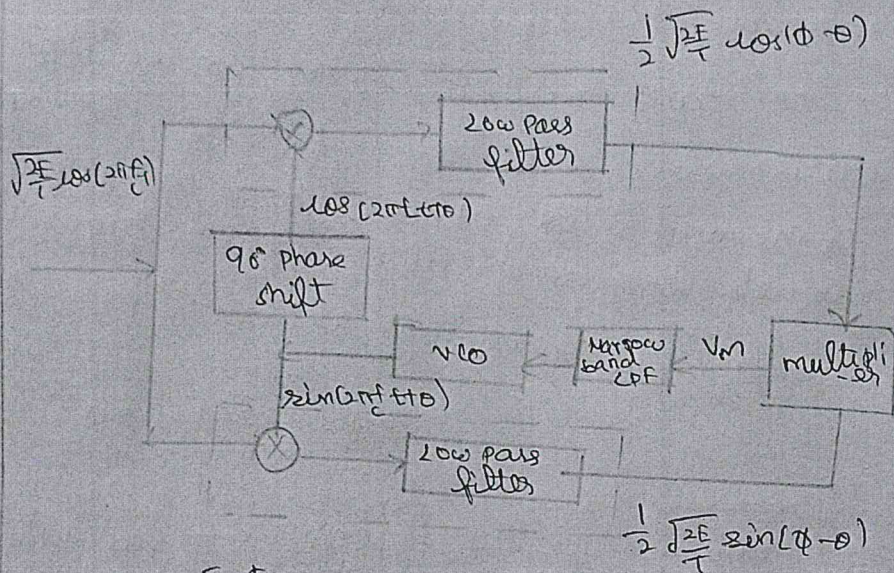 1/2 √(2E/T) cos(φ-θ)
Low Pass
filter
√(2E/T) cos(2πfct)
cos(2πfct+θ)
90° phase
shift
VCO
Narrow
band
LPF
Vm
multipli
-er
sin(2πfct+θ)
Low pass
filter
1/2 √(2E/T) sin(φ-θ)